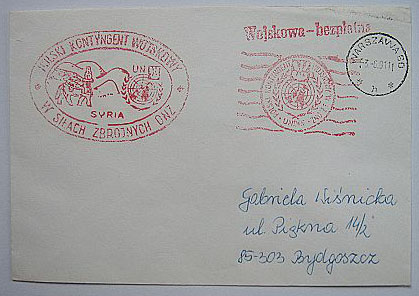 POLSKI KONTYNGENT WOJSKOWY
UN
SYRIA
W SIŁACH ZBROJNYCH ONZ
Wojskowa - bezpłatna
WARSZAWA 60
h
Gabriela Wiśnicka
ul. Piękna 14/2
85-303 Bydgoszcz